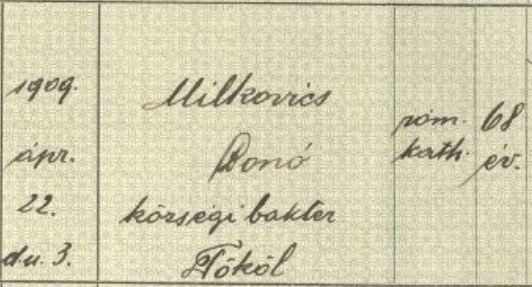 1909.
ápr.
22.
d.u. 3.
Milkovics
Donó
községi bakter
Tököl
róm.
kath.
68
év.